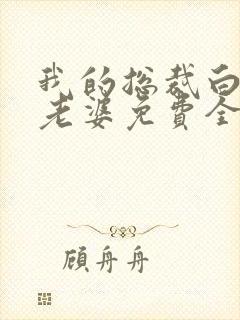 我的总裁白
老婆免费全
顾舟舟